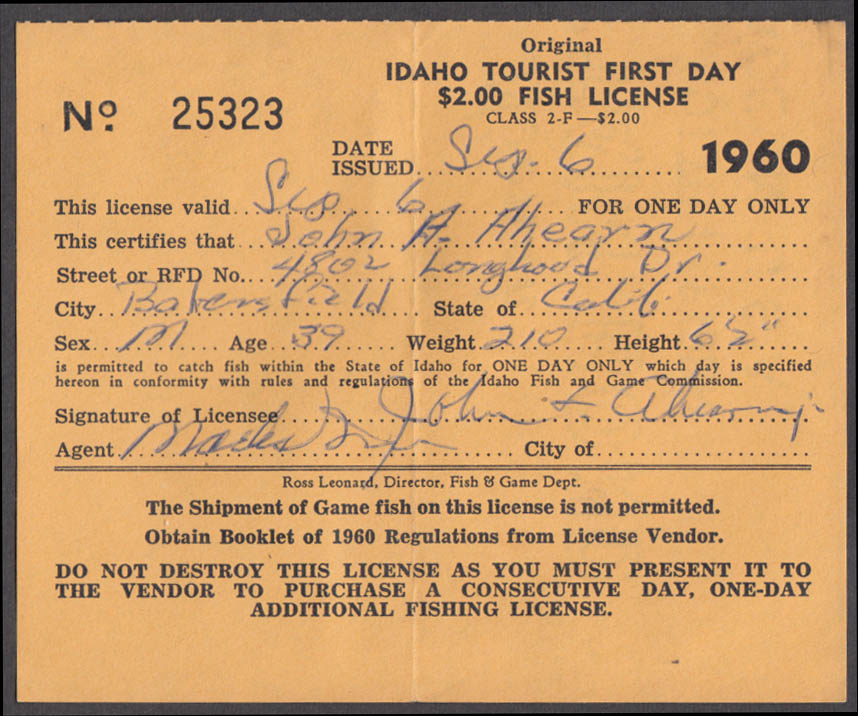 Original
IDAHO TOURIST FIRST DAY
$2.00 FISH LICENSE
CLASS 2-F—$2.00
Nº 25323
DATE
ISSUED Sep. 6 1960
This license valid Sep. 6 FOR ONE DAY ONLY
This certifies that John A. Ahearn
Street or RFD No. 4802 Longwood Dr.
City Bakersfield State of Calif.
Sex M Age 39 Weight 210 Height 6'2"
is permitted to catch fish within the State of Idaho for ONE DAY ONLY which day is specified
hereon in conformity with rules and regulations of the Idaho Fish and Game Commission.
Signature of Licensee John Ahearn
Agent City of
Ross Leonard, Director, Fish & Game Dept.
The Shipment of Game fish on this license is not permitted.
Obtain Booklet of 1960 Regulations from License Vendor.
DO NOT DESTROY THIS LICENSE AS YOU MUST PRESENT IT TO
THE VENDOR TO PURCHASE A CONSECUTIVE DAY, ONE-DAY
ADDITIONAL FISHING LICENSE.